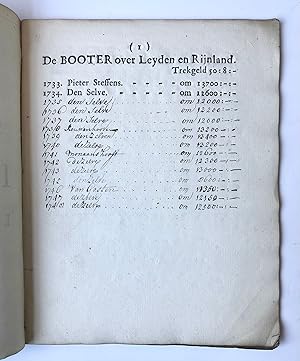 ( 1 )
De BOOTER over Leyden en Rijnland.
Trekgeld 50:8:-
1733. Pieter Steffens. - - om 13700:-:-
1734. Den Selve, - - - om 11600:-:-
1735 den Selve - - - om 12000:-:-
1736 den Selve - - - om 12200:-:-
1737 den Selve - - - om 12000:-:-
1738 - - - om 13200:-:-
1739 den Selven - - - om 12400:-:-
1740 de Selve - - - om 12200:-:-
1741 - - - om 12600:-:-
1742 de Zelve - - - om 12300:-:-
1743 de Zelve - - - om
1745 den Zelve - - - om
1746 Van - - - om
1747 de Zelve - - - om
de Zelve - - - om